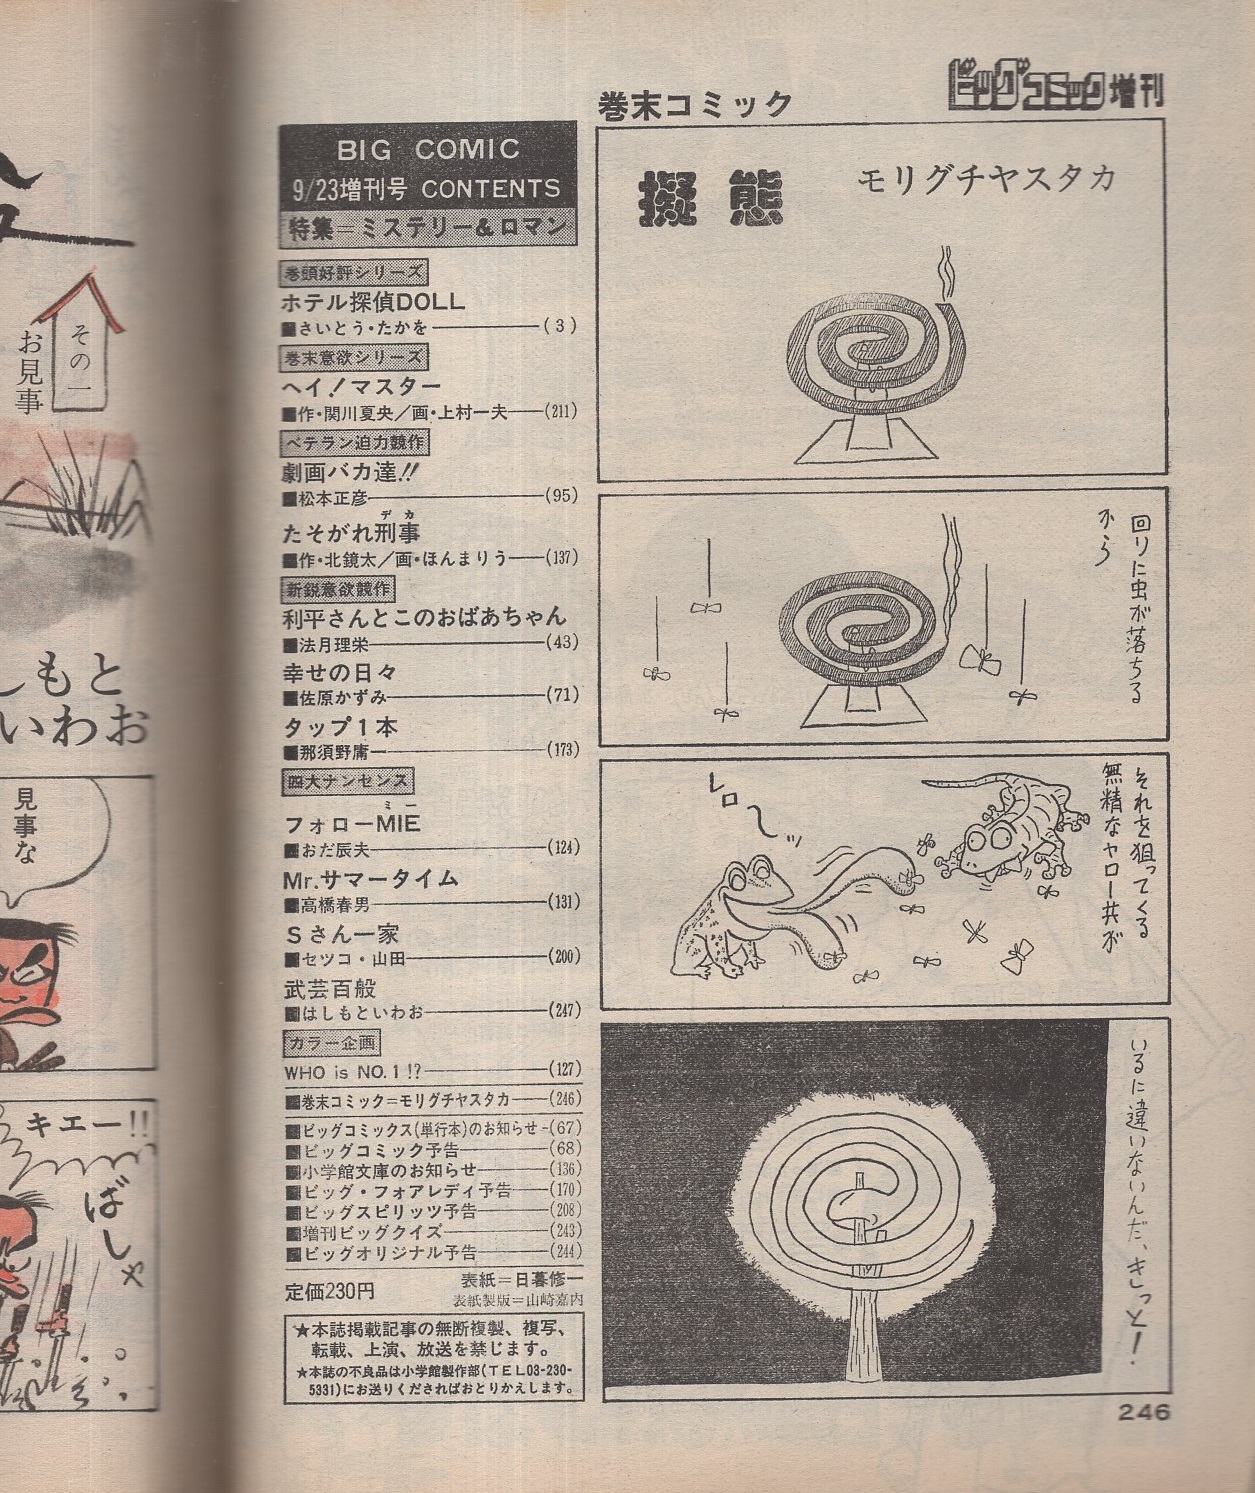 ビッグコミック増刊
巻末コミック
擬態
モリグチヤスタカ
回りに虫が落ちる
から
それを狙ってくる
無精なヤロー共が
レロ〜ッ
いるに違いないんだ、きっと！
246
BIG COMIC
9/23増刊号 CONTENTS
特集=ミステリー&ロマン
巻頭好評シリーズ
ホテル探偵DOLL
■さいとう・たかを (3)
巻末意欲シリーズ
ヘイ!マスター
■作・関川夏央／画・上村一夫 (211)
ベテラン迫力競作
劇画バカ達!!
■松本正彦 (95)
デカ
たそがれ刑事
■作・北鏡太／画・ほんまりう (137)
新鋭意欲競作
利平さんとこのおばあちゃん
■法月理栄 (43)
幸せの日々
■佐原かずみ (71)
タップ1本
■那須野庸一 (173)
四大ナンセンス
ミー
フォローMIE
■おだ辰夫 (124)
Mr.サマータイム
■高橋春男 (131)
Sさん一家
■セツコ・山田 (200)
武芸百般
■はしもといわお (247)
カラー企画
WHO is NO.1!? (127)
■巻末コミック=モリグチヤスタカ (246)
■ビッグコミックス(単行本)のお知らせ (67)
■ビッグコミック予告 (68)
■小学館文庫のお知らせ (136)
■ビッグ・フォアレディ予告 (170)
■ビッグスピリッツ予告 (208)
■増刊ビッグクイズ (243)
■ビッグオリジナル予告 (244)
定価230円
表紙=日暮修一
表紙製版=山崎嘉内
★本誌掲載記事の無断複製、複写、
転載、上演、放送を禁じます。
★本誌の不良品は小学館製作部(TEL03-230-
5331)にお送りくださればおとりかえします。
その一
お見事
しもと
いわお
見事な
キエー!!
ばしゃ